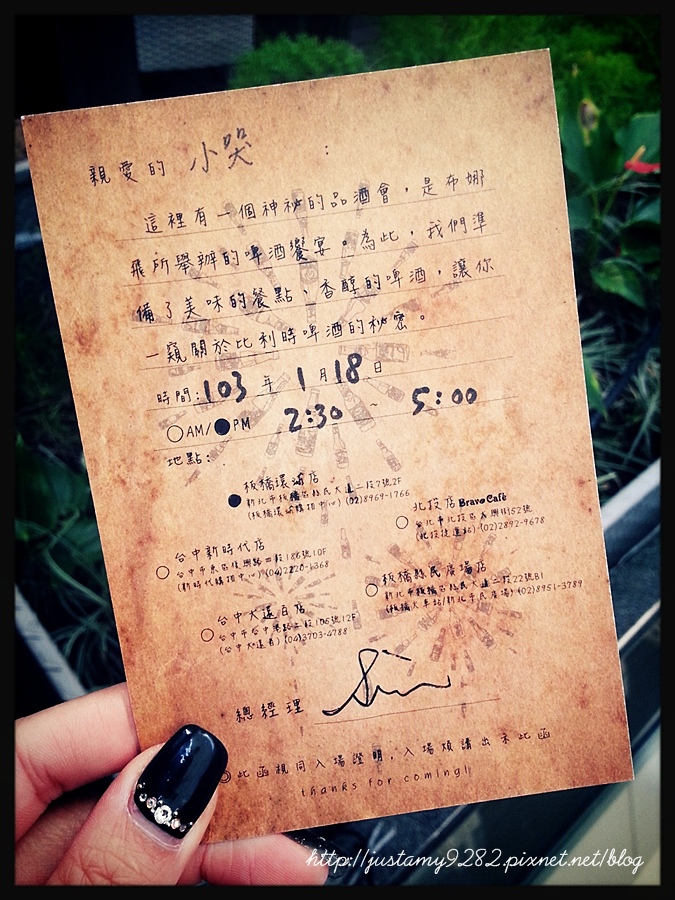 親愛的 小哭 :
這裡有一個神祕的品酒會，是布娜
飛所舉辦的啤酒饗宴。為此，我們準
備了美味的餐點、香醇的啤酒，讓你
一窺關於比利時啤酒的秘密。
時間:103 年 1 月 18 日
○AM/●PM 2:30 ~ 5:00
地點:
● 板橋環球店
新北市板橋區縣民大道二段7號2F
(板橋環球購物中心) (02)8969-1766
○ 北投店 Bravo Café
台北市北投區大興街52號
(北投捷運站) (02)2892-9678
○ 台中新時代店
台中市東區復興路四段186號10F
(新時代購物中心) (04)2220-1368
○ 板橋縣民廣場店
新北市板橋區縣民大道二段22號B1
(板橋火車站/新北市民廣場) (02)8951-3789
○ 台中大遠百店
台中市台中港路二段105號12F
(台中大遠百) (04)3703-4788
總經理
◎此函視同入場證明，入場煩請出示此函
thanks for coming!!
http://justamy9282.pixnet.net/blog